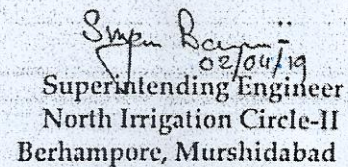 02/04/19
Superintending Engineer
North Irrigation Circle-II
Berhampore, Murshidabad